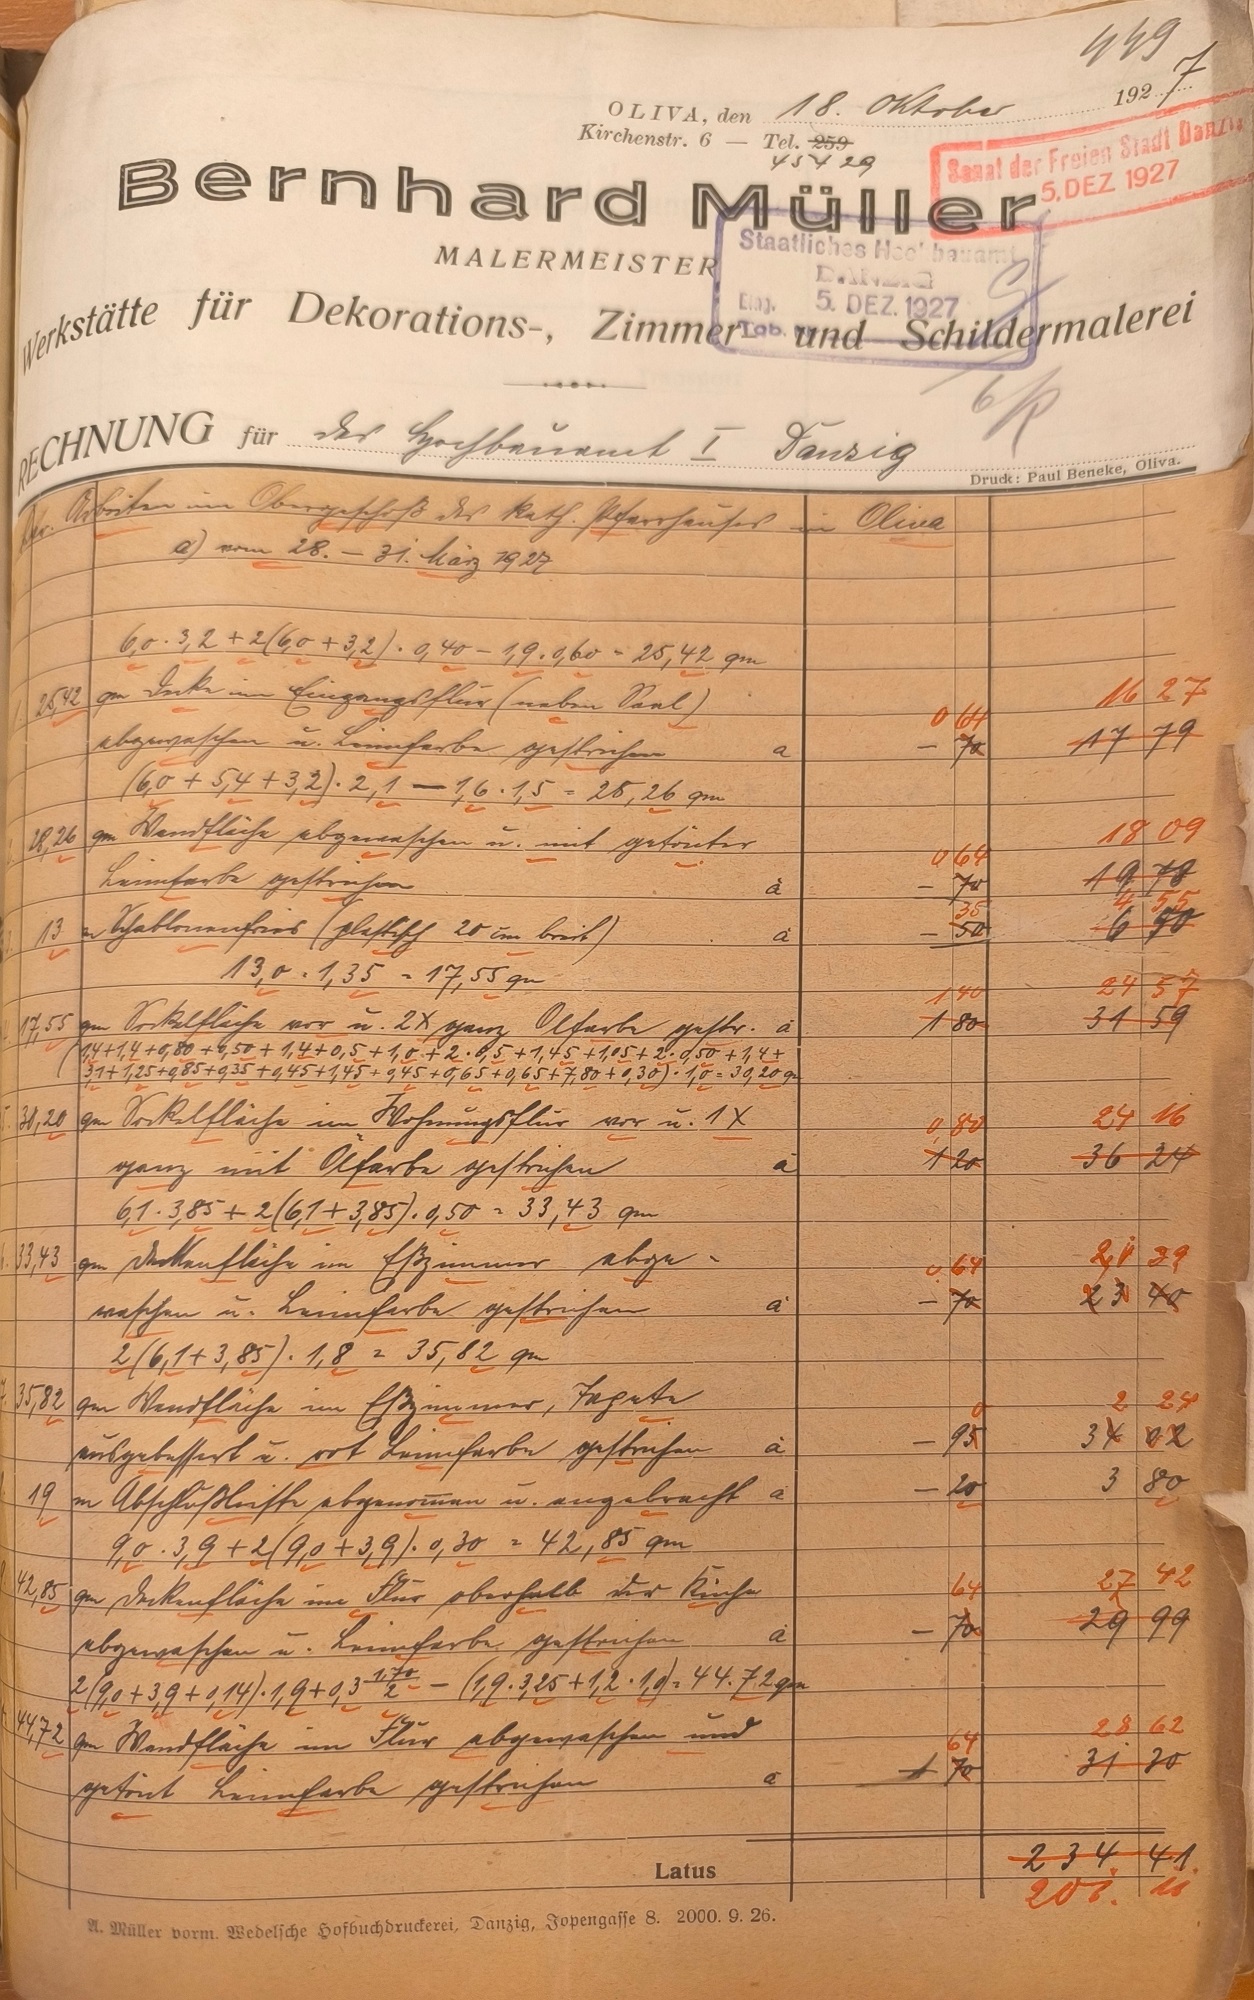 449
OLIVA, den 18. Oktober 1927
Kirchenstr. 6 — Tel. 259
45429
Senat der Freien Stadt Danzig
5. DEZ. 1927
Bernhard Müller
Staatliches Hochbauamt
DANZIG
Eing. 5. DEZ. 1927
MALERMEISTER
Werkstätte für Dekorations-, Zimmer- und Schildermalerei
RECHNUNG für das Hochbauamt I Danzig
Druck: Paul Beneke, Oliva.
Arbeiten im Obergeschoß des kath. Pfarrhauses in Oliva
a) vom 28. – 31. März 1927
6,0 · 3,2 + 2(6,0 + 3,2) · 0,40 – 1,9 · 0,60 = 25,42 qm
25,42 qm Decke im Eingangsflur (neben Saal) 0 64 16 27
abgewaschen u. Leimfarbe gestrichen a – 70 17 79
(6,0 + 5,4 + 3,2) · 2,1 – 1,6 · 1,5 = 28,26 qm
28,26 qm Wandfläche abgewaschen u. mit getönter 0 64 18 09
Leimfarbe gestrichen à – 70 19 78
35 4 55
13 m Schablonenfries (plastisch 20 cm breit) à – 50 6 50
13,0 · 1,35 = 17,55 qm
1 40 24 57
17,55 qm Sockelfläche vor u. 2x ganz Ölfarbe gestr. à 1 80 31 59
(1,4+1,4+0,80+0,50+1,4+0,5+1,0+2·0,5+1,45+1,05+2·0,50+1,4+
3,1+1,25+0,85+0,35+0,45+1,45+0,45+0,65+0,65+7,80+0,30) · 1,0 = 30,20 qm
30,20 qm Sockelfläche im Wohnungsflur vor u. 1x 0,80 24 16
ganz mit Ölfarbe gestrichen à 1 20 36 24
6,1 · 3,85 + 2(6,1 + 3,85) · 0,50 = 33,43 qm
33,43 qm Deckenfläche im Eßzimmer abge- 0 64 21 39
waschen u. Leimfarbe gestrichen à – 70 23 40
2(6,1 + 3,85) · 1,8 = 35,82 qm
35,82 qm Wandfläche im Eßzimmer, Tapete
ausgebessert u. rot Leimfarbe gestrichen à – 95 34 02
19 m Abschlußleiste abgenommen u. angebracht à – 20 3 80
9,0 · 3,9 + 2(9,0 + 3,9) · 0,30 = 42,85 qm
42,85 qm Deckenfläche im Flur oberhalb der Küche 64 27 42
abgewaschen u. Leimfarbe gestrichen à – 70 29 99
2(9,0 + 3,9 + 0,14) · 1,9 + 0,3 · 1,70/2 – (1,9 · 3,25 + 1,2 · 1,0) = 44,72 qm
44,72 qm Wandfläche im Flur abgewaschen und 64 28 62
getönt Leimfarbe gestrichen a 70 31 30
234 41
Latus 201. 11
A. Müller vorm. Wedelsche Hofbuchdruckerei, Danzig, Jopengasse 8. 2000. 9. 26.